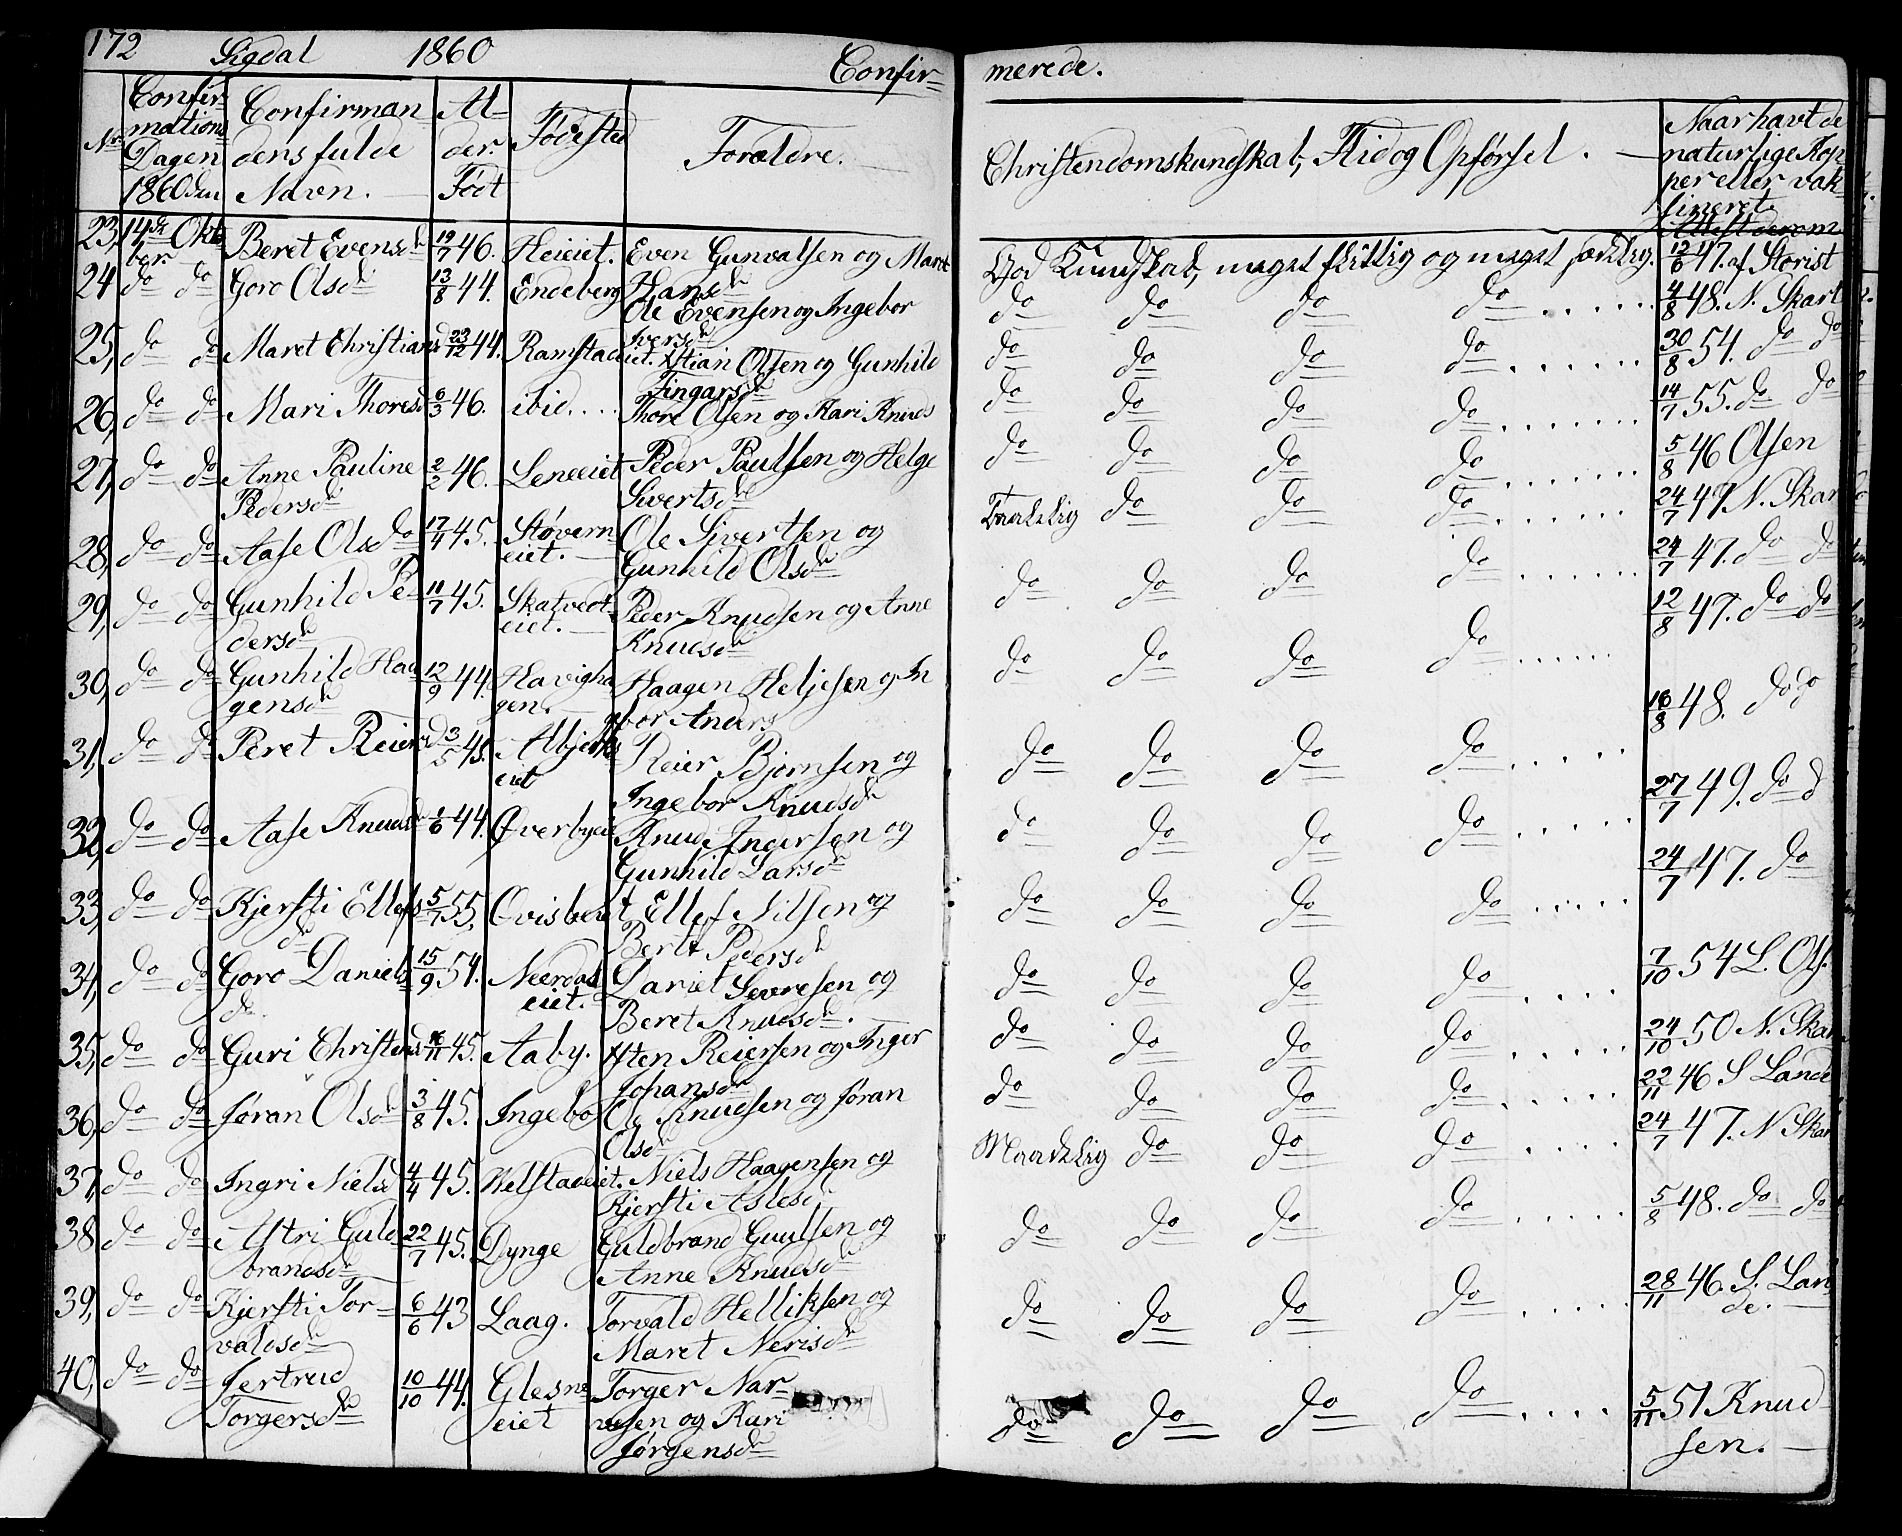 172 Sigdal 1860 Confir=
merede.
Nr. Confir=mations Dagen 1860 den
Confirman dens fulde Navn.
Al-der. Født
Fødested
Forældre.
Christendomskundskab, Flid og Opførsel.
Naar havt de naturlige Kop per eller vak sineret.
23, 14de Oktober. Beret Evensdr 19/7 46. Heieiet. Even Gunvalsen og Maret Hansdr God Kundskab, meget flittig og meget sædelig. 12/6 47. af Storist
24 do do Goro Olsdr 13/8 44. Endeberg Ole Evensen og Ingebor Iversdr do do do do 4/8 48. N. Skart
25, do do Maret Christiansd 23/12 44. Ramstadeiet. Xstian Olsen og Gunhild Fingarsdr do do do do 30/8 54. do do
26, do do Mari Thoresd 6/3 46. ibid.... Thore Olsen og Kari Knuds do do do do 14/7 55. do do
27, do do Anne Pauline Pedersdr 2/2 46. Leneeiet Peder Paulsen og Helge Sivertsdr do do do do 5/8 46 Olsen
28, do do Aase Olsdr 17/4 45. Støvern eiet. Ole Sivertsen og Gunhild Olsdr Taalelig do do do 24/7 47 N. Skar
29, do do Gunhild Pe-dersdr 11/7 45. Skatvedt-eiet. Peder Knudsen og Anne Knudsdr do do do do 24/7 47. do do
30, do do Gunhild Haa gensdr 12/9 44. Havigha gen. Haagen Heljesen og In gbor Anders do do do do 12/8 47. do do
31, do do Beret Reiersd 3/5 45. Albjerks eiet Reier Bjørnsen og Ingebor Knudsdr do do do do 16/8 48. do do
32, do do Aase Knudsdr 1/6 44. Øverbyeie Knud Andersen og Gunhild Larsdr do do do do 27/7 49. do d
33, do do Kjersti Ellefs dr 5/7 55. Qvisleiet Ellef Nilsen og Berte Pedersd do do do do 24/7 47. do
34, do do Goro Daniels dr. 15/9 54. Neerdal eiet. Daniel Severesen og Beret Knudsdr. do do do do 7/10 54 L. Ols.
35, do do Guri Christensd 16/11 45. Aaby. Xsten Reiersen og Inger Johansdr do do do do 24/10 50 N. Skar
36, do do Jøran Olsdr 3/8 45. Ingebo Ole Knudsen og Jøran Olsdr do do do do 22/11 46 S Lande
37, do do Ingri Nielsd 4/4 45. Welstadeiet. Niels Haagensen og Kjersti Aslesd Maadelig do do do 24/7 47. N Skar
38 do do Astri Guld brandsdr 22/7 45. Dynge Guldbrand Guulsen og Anne Knudsdr do do do do 5/8 48. do do
39, do do Kjersti Tor-valdsdr 6/6 43 Laag. Torvald Helliksen og Maret Nerisdr do do do do 28/11 46. S. Lan de.
40, do do Jertrud Torgersdr 10/10 44. Glesne eiet Torger Nar-vesen og Kari Jørgensdr do do do do 5/11 51 Knud sen.